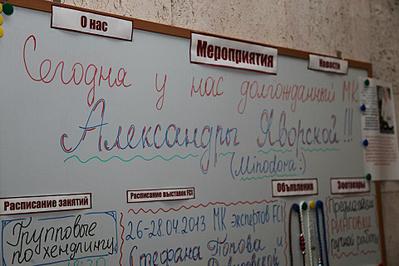 О нас
Мероприятия
Новости
Сегодня у нас долгожданный МК
Александры Яворской!!!
(Minodora:)
Расписание занятий
Расписание выставок FCI
Объявления
Зоотовары
Групповое
по хендлингу
26-28.04.2013 МК экспертов FCI
Стефана Попова и
Предлагаем
РИНГОВКИ
ручной работы